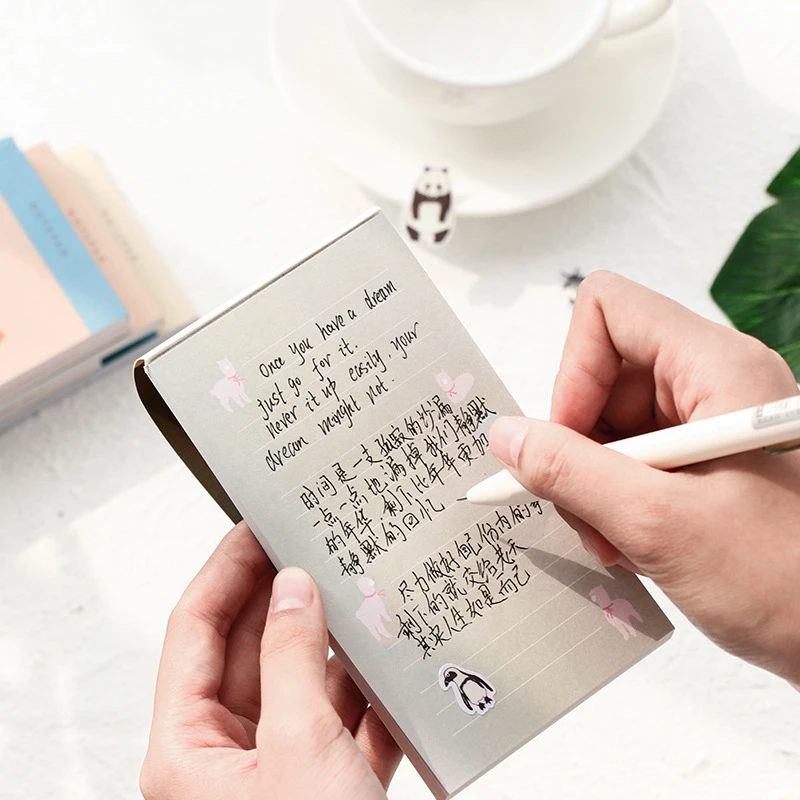 Once you have a dream
just go for it.
never it up easily, your
dream minght not.
时间是一支孤寂的沙漏
一点一点地漏掉我们静默
的年华.剩下比年年更加
静默的回忆
尽力做好自己份内的事
剩下的就交给未来
其实人生如是而已